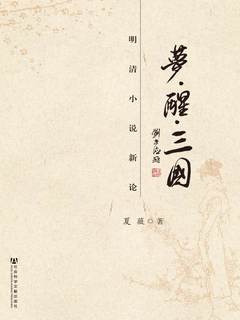 夢·醒·三國
明清小说新论
夏薇◎著
社会科学文献出版社